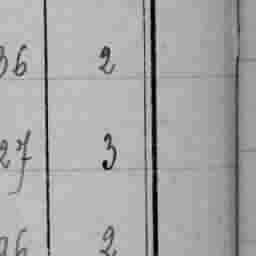 36 2
27 3
2